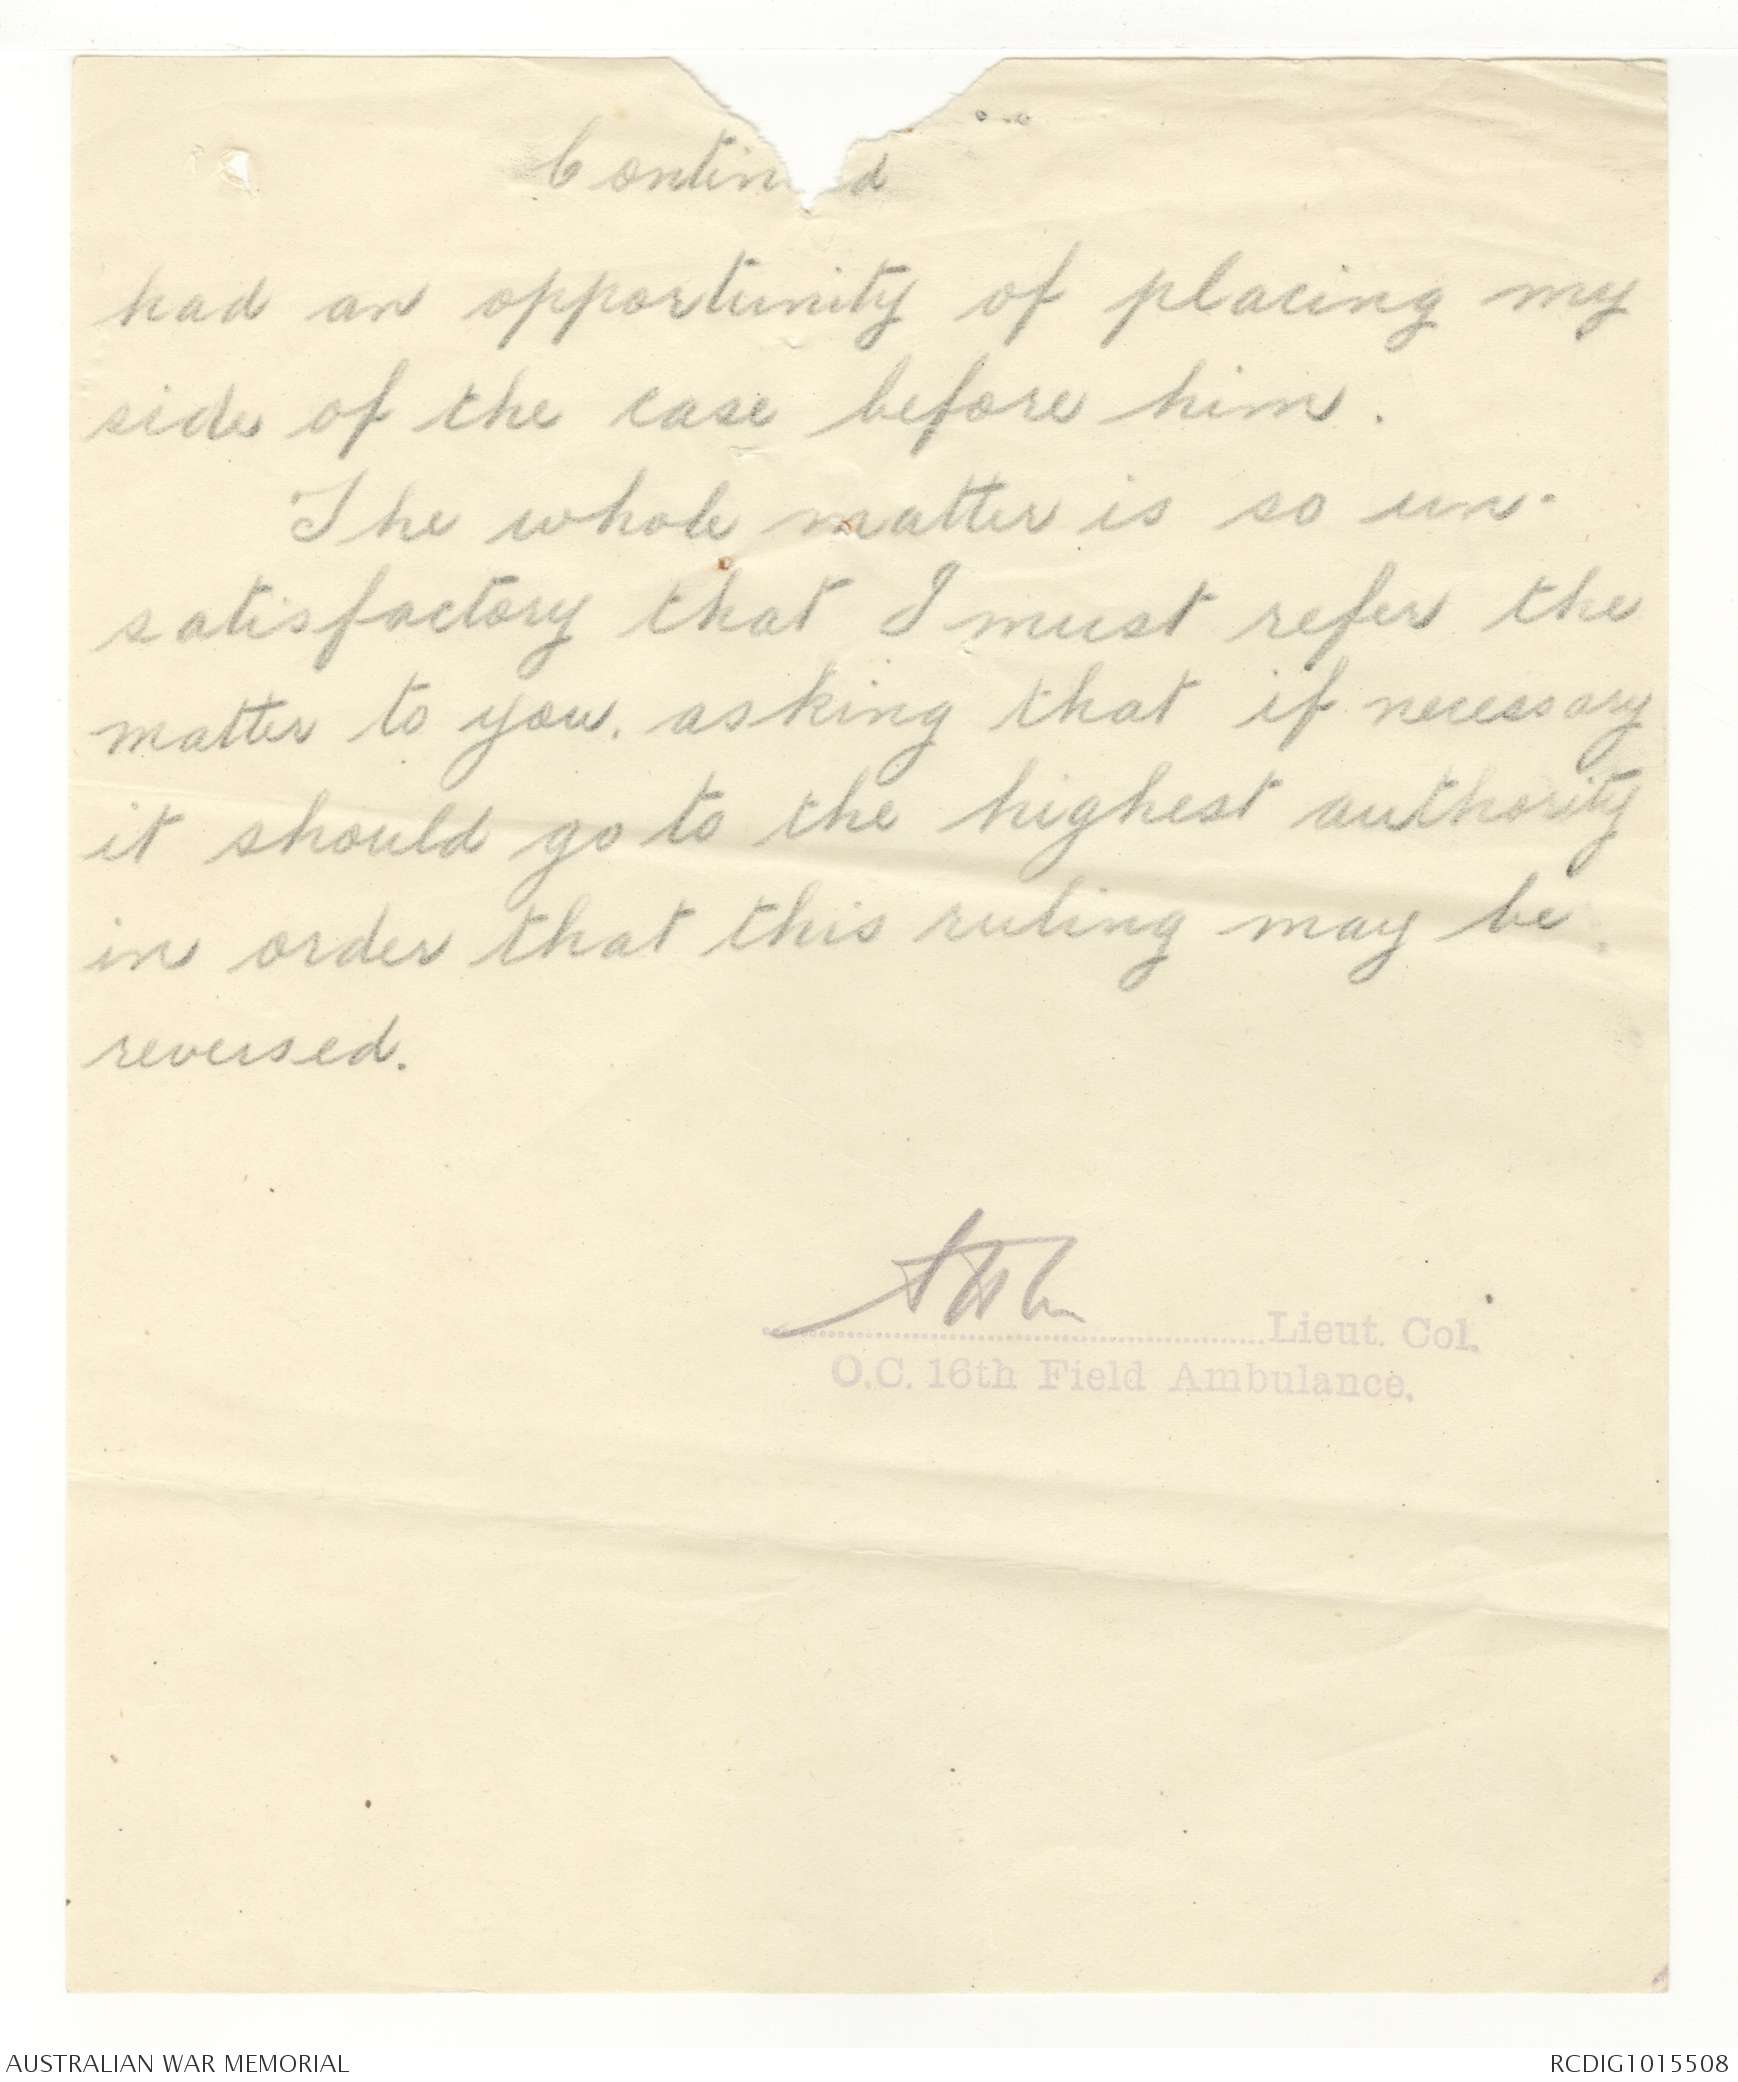 Contin d
had an opportunity of placing my
side of the case before him.
The whole matter is so un-
satisfactory that I must refer the
matter to you, asking that if necessary
it should go to the highest authority
in order that this ruling may be
reversed.
Lieut. Col.
O.C. 16th Field Ambulance.
AUSTRALIAN WAR MEMORIAL
RCDIG1015508